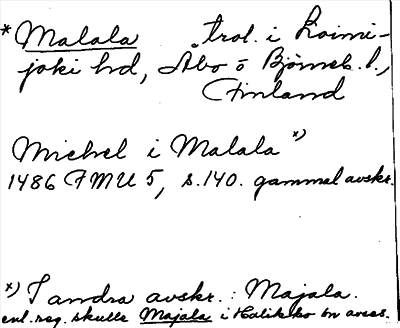 * Malala trol. i Loimi-
joki hd, Åbo o Björneb. l.,
Finland
Michel i Malala *)
1486 FMU 5, s. 140. gammal avskr.
*) I andra avskr.: Majala.
enl. reg. skulle Majala i Halikko hd avses.